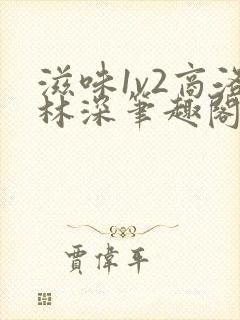 滋味1v2高洛
林深笔趣阁
賈偉平